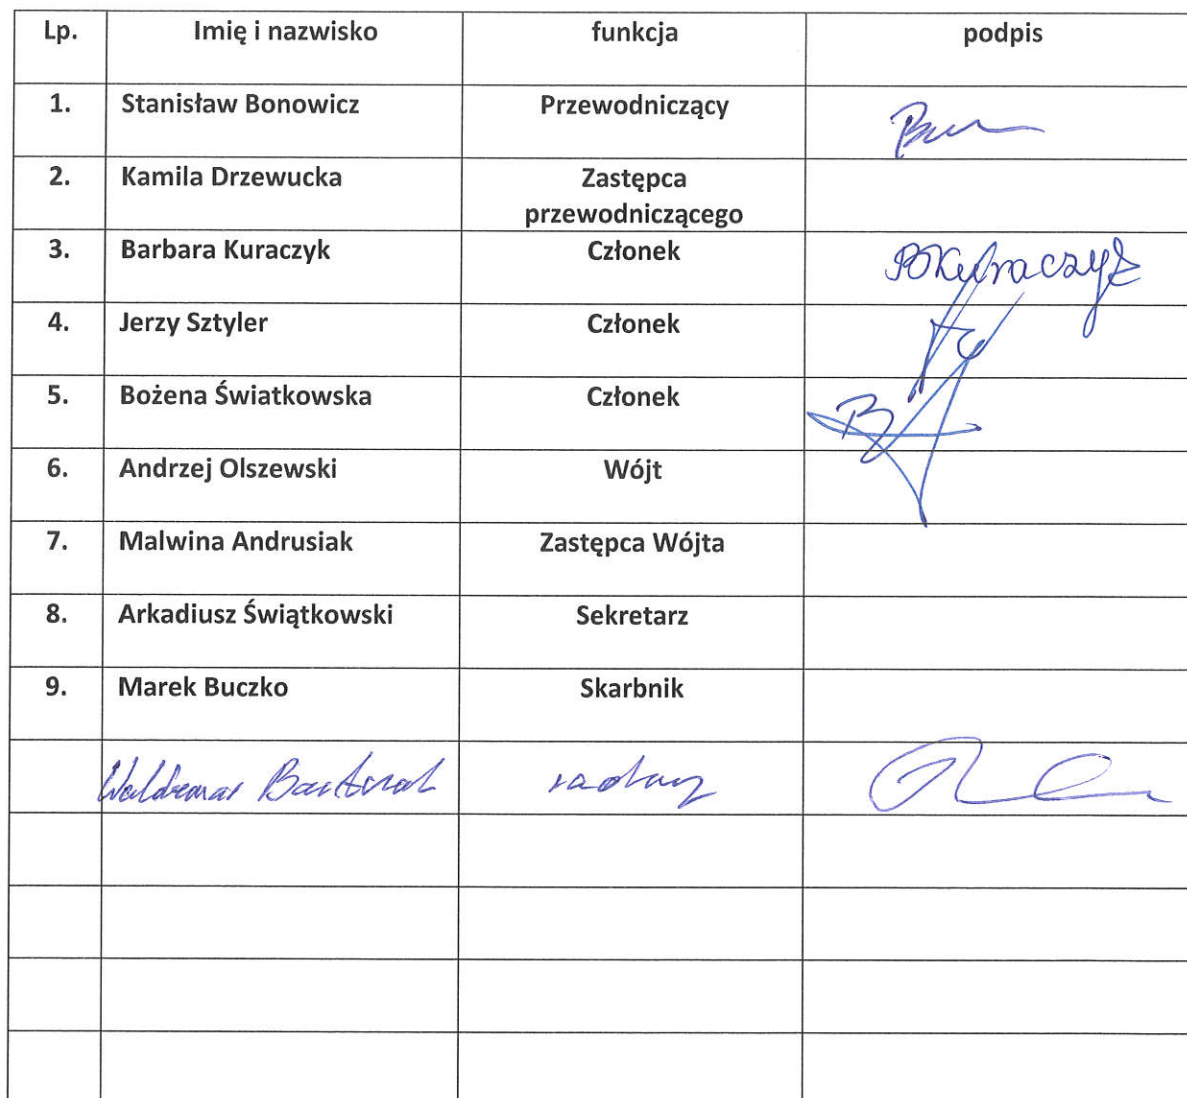 Lp. Imię i nazwisko funkcja podpis
1. Stanisław Bonowicz Przewodniczący
2. Kamila Drzewucka Zastępca
przewodniczącego
3. Barbara Kuraczyk Członek BKuraczyk
4. Jerzy Sztyler Członek
5. Bożena Światkowska Członek
6. Andrzej Olszewski Wójt
7. Malwina Andrusiak Zastępca Wójta
8. Arkadiusz Świątkowski Sekretarz
9. Marek Buczko Skarbnik
Waldemar radny